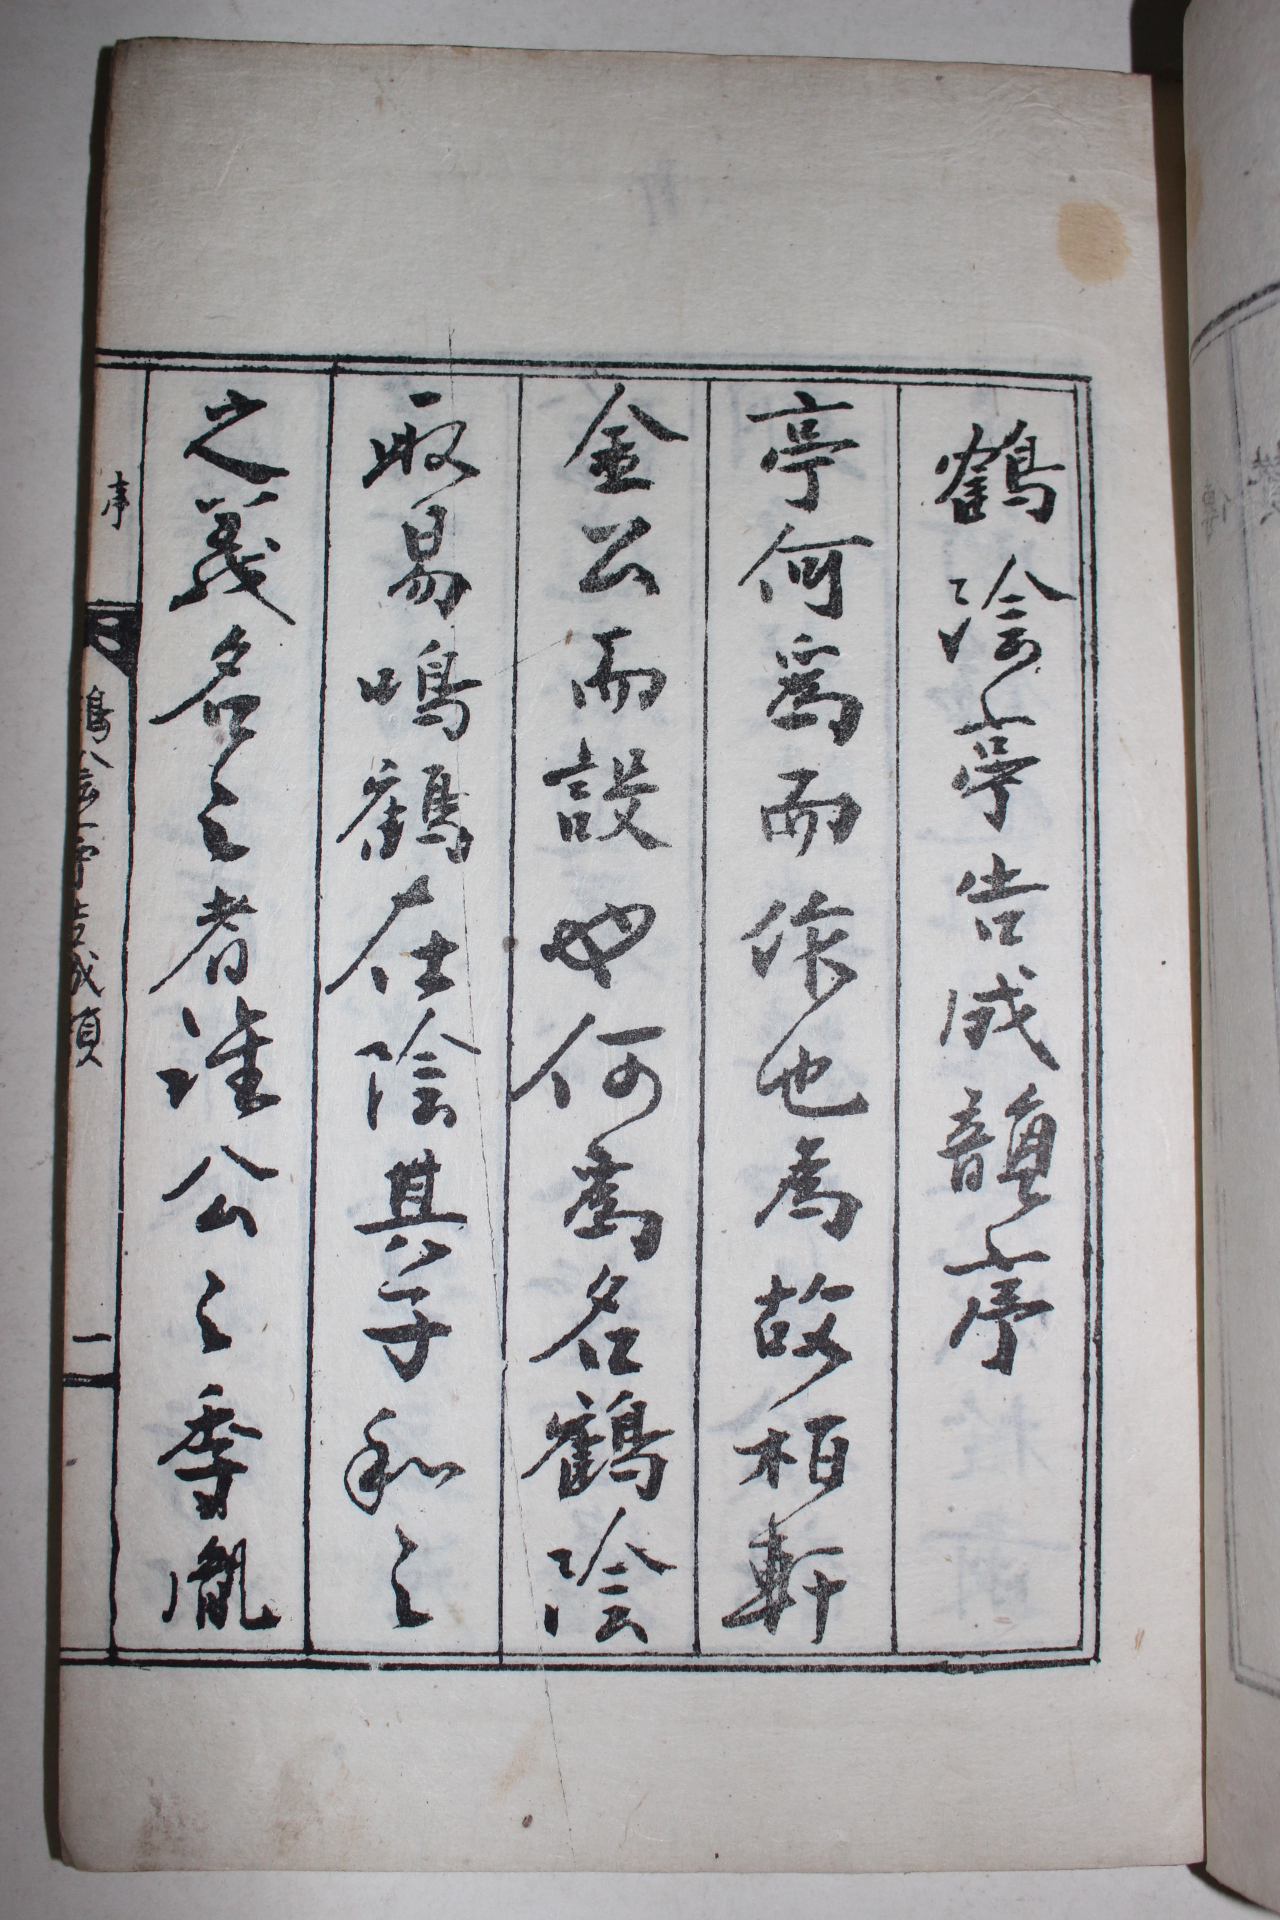 鶴陰亭告成韻序
亭何爲而作也爲故栢軒
金公而設也何爲名鶴陰
取易鳴鶴在陰其子和之
之義名之者誰公之季胤
序
鶴陰亭告成韻
一